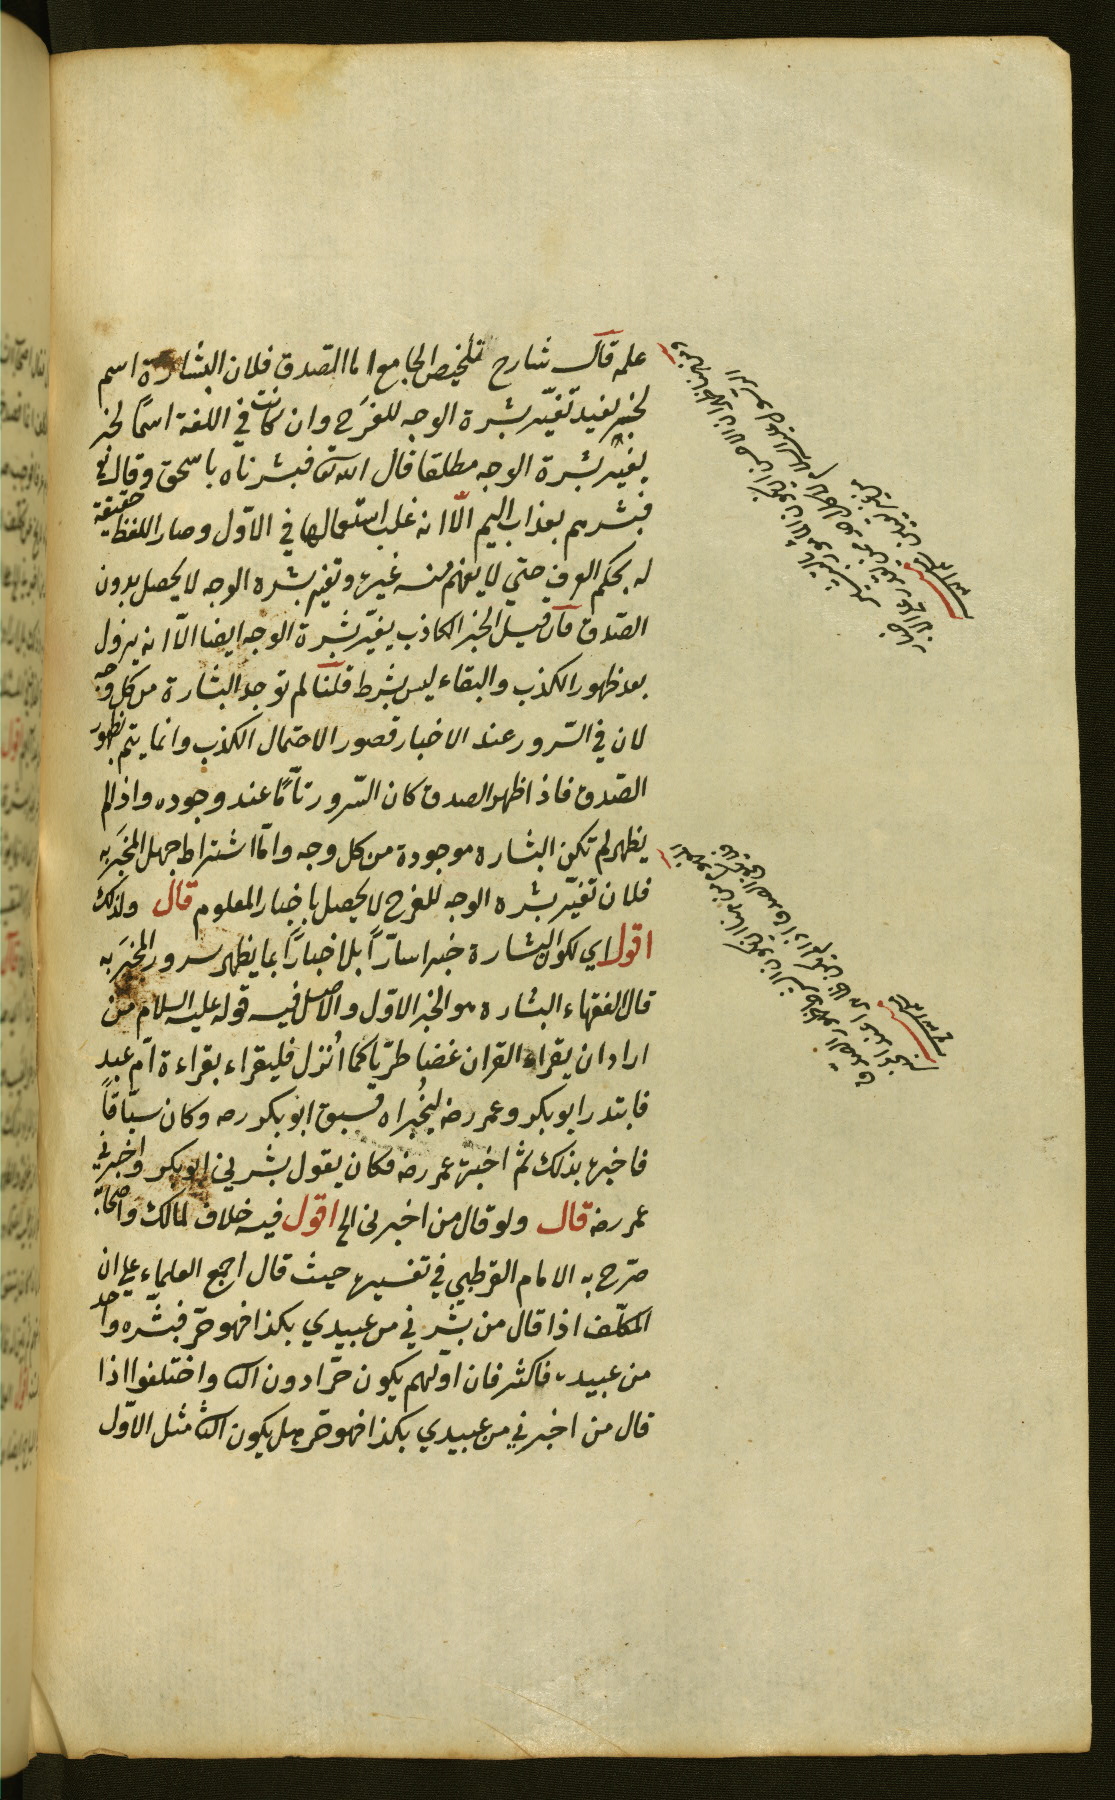 علمه قال شارح تلخيص الجامع اما الصدق فلان البشارة اسم
لخبر يفيد تغيّر بشرة الوجه للفرَح وان كانت في اللغة اسمًا لخبر
يغيّر بشرة الوجه مطلقا قال الله تعا فبشرناه باسحق وقال تعـ
فبشرهم بعذاب اليم الّا انه غلب استعمالها في الاوّل وصار اللفظ حقيقة
له بحكم العرف حتي لا يفهم منه غيره وتغير بشره الوجه لا يحصل بدون
الصّدق فآن قيل الخبر الكاذب يغيّر بشرة الوجه ايضا الّا انه يزول
بعد ظهور الكذب والبقاء ليس بشرط قلنَا لم توجد البشارة من كل وجه
لان في السّرور عند الاخبار قصور الاحتمال الكذب وانما يتم بظهور
الصّدق فاذا ظهر الصدق كان السّرور تامًّا عند وجوده واذا لم
يظهر لم تكن البشاره موجودة من كل وجه وامّا اشتراط جهل المخبَر به
فلان تغيّر بشره الوجه للفرح لا يحصل باخبار المعلوم قال ولذلك
اقول اي لكون البشارة خبرا سارّاً بل اخبارًا بما يظهر سرور المخبَر به
قال الفقهاء البشاره هو الخبر الاوّل والاصل فيه قوله عليه السلام من
اراد ان يقراء القران غضا طريّا كما اُنزل فليقراء بقراءة امّ عبد
فابتدر ابو بكر وعمر رضه ليخبُراه فسبق ابو بكر رضه وكان سبّاقاً
فاخبره بذلك ثم اخبره عمر رضه فكان يقول بشرني ابو بكر واخبرني
عمر رضه قال ولو قال من اخبرني الخ اقول فيه خلاف لمالك واصحابه
صرّح به الامام القرطبي في تفسيره حيث قال اجمع العلماء علي ان
المكلّف اذا قال من بشّرني من عبيدي بكذا فهو حرّ فبشّره واحد
من عبيده فاكثر فان اولهم يكون حرّا دون الثا واختلفوا اذا
قال من اخبرني من عبيدي بكذا فهو حر هل يكون الثا مثل الاوّل